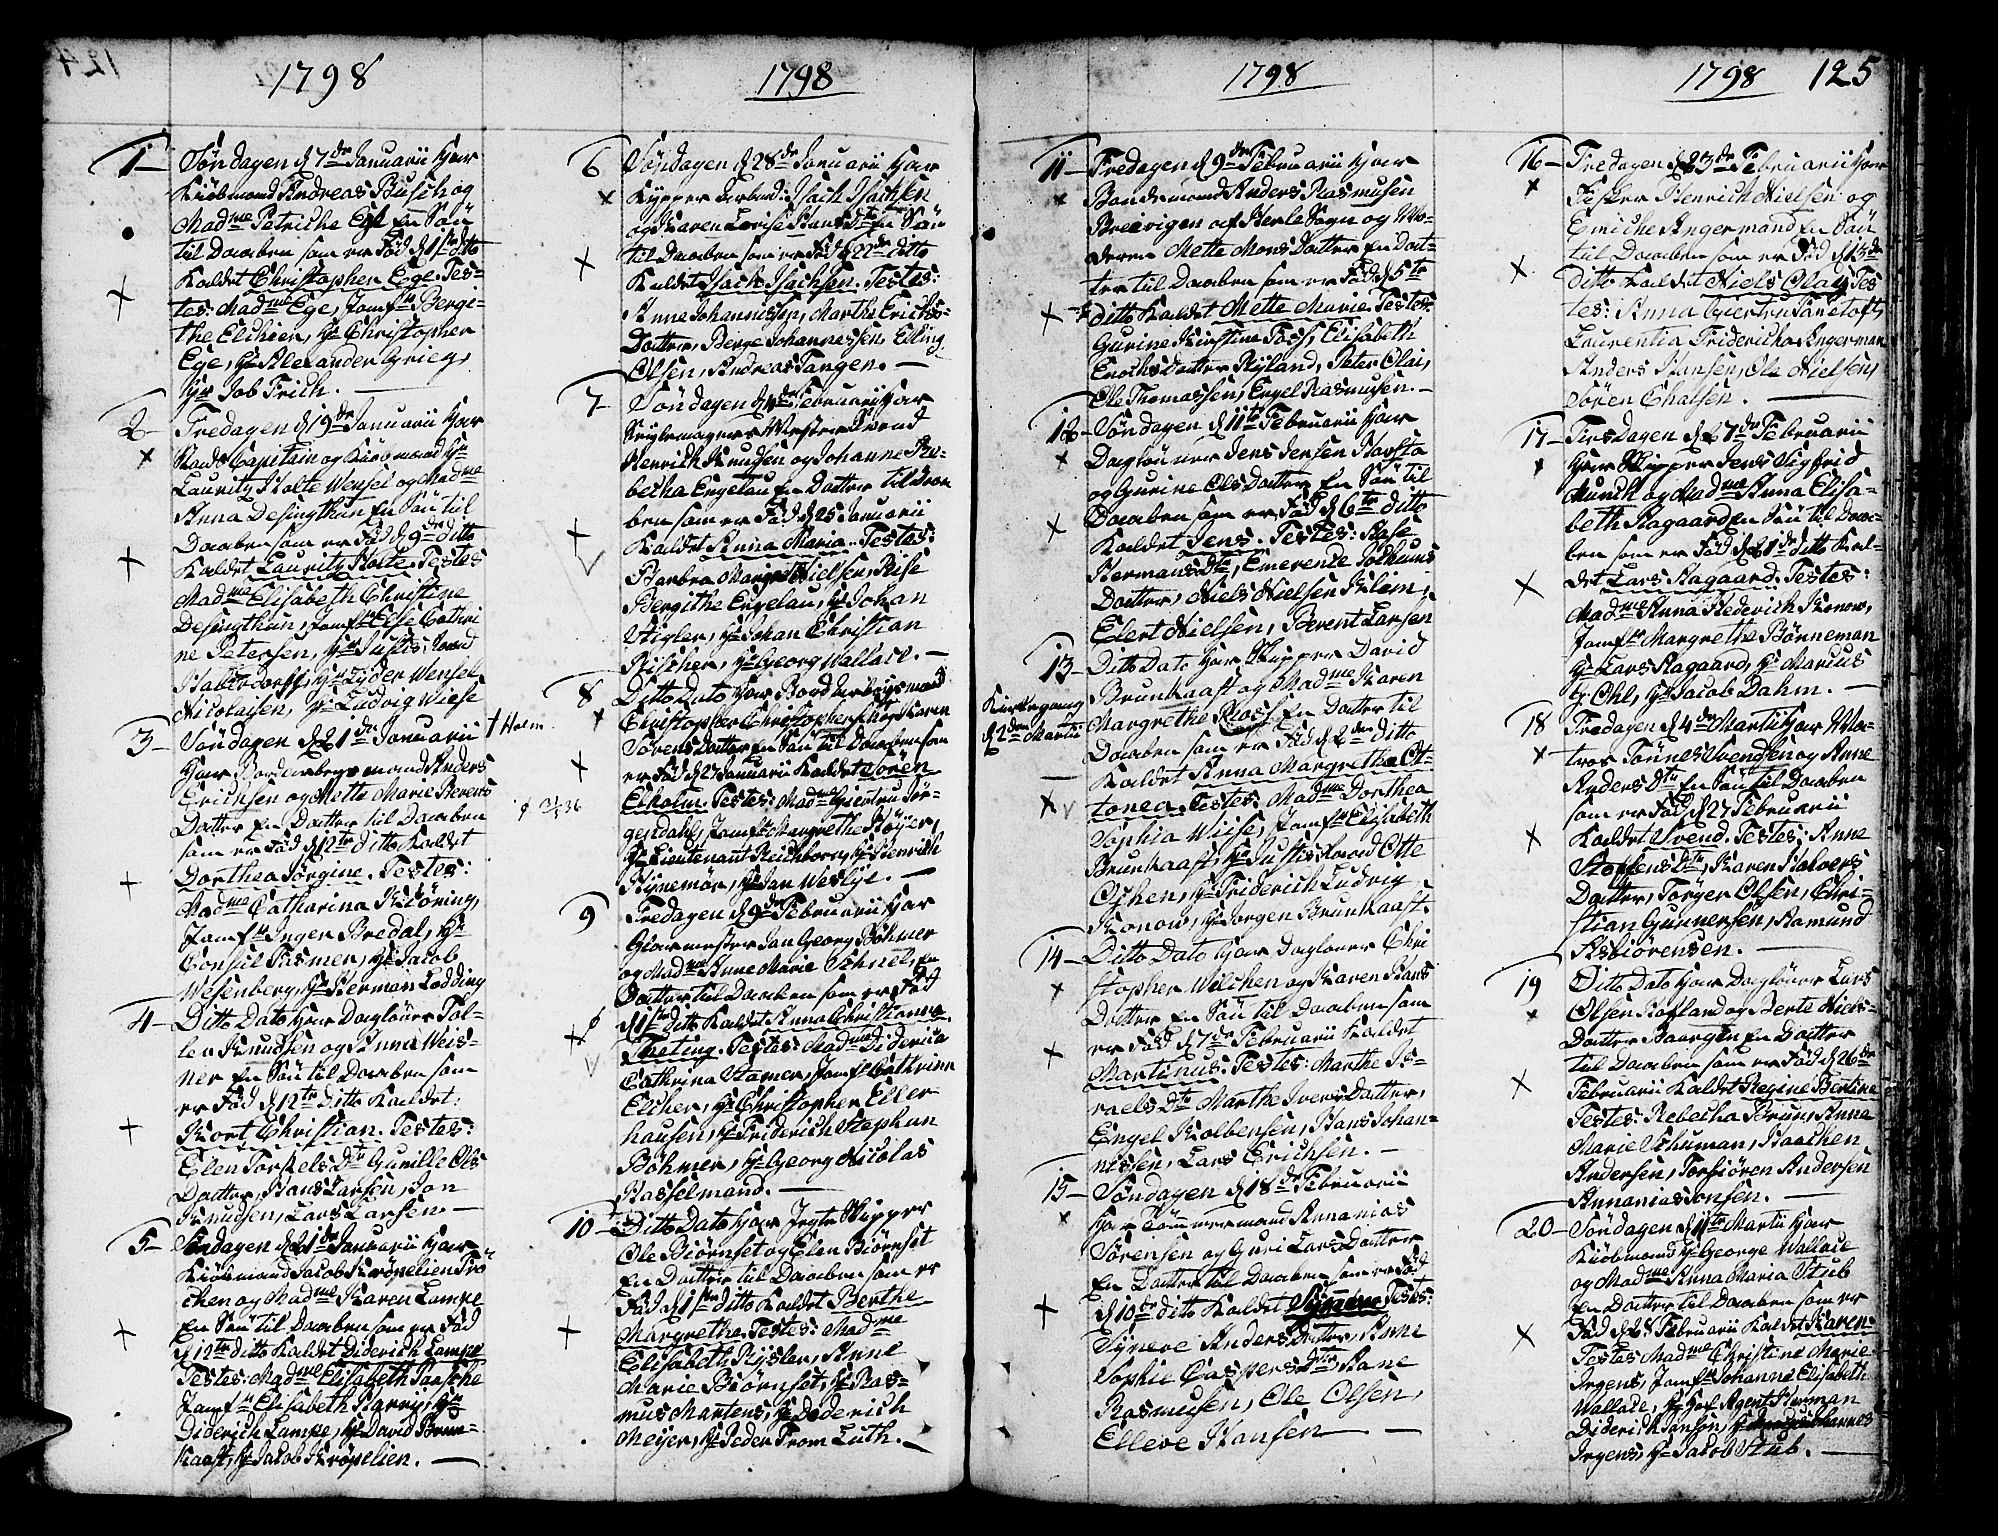 124
1798
1 Søndagen d 7de Januarii har
Kiøbmand Andreas Busch og
Madme Petriche Ege En Søn
til Daaben som er Fød d 1ste ditto
Kaldet Christopher Ege. Tes-
tes: Madme Ege, Jomfr Bergi-
the Elchier, Hr Christopher
Ege, Hr Alexander Grieg,
Hr Job Frich.
2 Fredagen d 19de Januarii har
Capitain og Kiøbmand Hr
Lauritz Holte Wensel og Madme
Anna Desington En Søn til
Daaben som er Fød d 9de ditto
Kaldet Lauritz Holte. Testes
Madme Elisabeth Christine
Desingthun, Jomfr Else Cathri
ne Petersen, Hr Justis:
Haberdorff, Hr Lyder Wensel
Nicolaisen, Hr Ludvig Wiese
3 Søndagen d 21de Januarii
har Borderbergsmand Anders
Erichsen og Mette Marie Berents
Datter En Datter til Daaben
som er Fød d 12te ditto Kaldet
Dorthea Jørgine. Testes:
Madme Catharina Kløning,
Jomfr Inger Bredal, Hr
Consul Fasmer, Hr Jacob
Wesenberg, Hr Herman Lødding
4 Ditto Dato har Dagløner Tol-
lev Knudsen og Anna Weis-
ner En Søn til Daaben som
er Fød d 12te ditto Kaldet:
Kort Christian. Testes:
Elen Torkels Dtr Gunille Ols
Datter, Hans Larsen, Jan
Knudsen, Lars Larsen.
5 Søndagen d 21de Januarii har
Kiøbmand Jacob Krøpelien Frö
chen og Madme Karen Lampe
En Søn til Daaben som er Fød
d 12te ditto Kaldet Diderich Lampe
Testes: Madme Elisabeth Fasche
Jomfr Elisabeth Harry, Hr
Diderich Lampe, Hr David Brun-
kaast, Hr Jacob Krøpelien.
† Holm.
1798
6 Søndagen d 28de Januarii har
Kypper Isach Isachsen
og Karen Lovise Hans Dtr En Søn
til Daaben som er Fød d 22de ditto
Kaldet Isach Isachsen. Testes:
Anne Johannissen, Marthe Erichs-
Datter, Berge Johannessen, Elling
Olsen, Andreas Tangen.
7 Søndagen d 4de Februarii har
Svend
Henrich Knudsen og Johanne Re-
becha Engelau En Datter til Daa
ben som er Fød d 25 Januarii
Kaldet Anna Maria. Testes:
Barbra Margreth Nielsen,
Bergithe Engelau, Hr Johan
Vigler, Hr Johan Christian
Rischer, Hr Georg Wallace.
8 Ditto Dato har Bordderbergsmand
Christopher Christophersen og Karen
Sørens Datter En Søn til Daaben som
er Fød d 27 Januarii Kaldet Søren
Elholm. Testes: Madme Giertru Jør-
gendahl, Jomfr Margrethe Høyer,
Hr Lieutenant Reichborn, Hr Henrich
Rynemør, Hr Jan Weslye.
9 Fredagen d 9de Februarii har
Glarmester Jan Georg Böhmer
og Madme Anne Marie Schnel, En
Datter til Daaben som er Fød
d 1ste ditto Kaldet Anna Christianna
Theting. Testes: Madme Diderica
Cathrina Stamer, Jomfr Cathrina
Elcher, Hr Christopher Eller-
hausen, Hr Friderich Stephan
Böhmer, Hr Georg Nicolas
Hasselmand.
10 Ditto Dato har Jegte Skipper
Ole Biørnset og Elen Biørnset
En Datter til Daaben som er
Fød d 1ste ditto Kaldet Berthe
Margrethe. Testes: Madme
Elisabeth Rysler, Anne
Marie Biørnset, Hr Ras-
mus Martens, Hr Diderich
Meyer, Hr Peder From Luth.
1798
11 Fredagen d 9de Februarii har
Bondemand Anders Rasmusen
Breivigen af Herle Sogn og Mo-
deren Mette Mons Datter En Dat-
ter til Daaben som er Fød d 5te
ditto Kaldet Mette Marie. Testes:
Gurine Kirstine Foss, Elisabeth
Enochs Datter Ryland, Peter Olai,
Ole Thomassen, Engel Rasmusen.
12 Søndagen d 11te Februarii har
Dagløner Jens Jensen Harsta
og Gurine Ols Datter En Søn til
Daaben som er Fød d 6te ditto
Kaldet Jens. Testes: Aase
Hermans Dtr, Emerente Folkums
Datter, Niels Nielsen Klem,
Elert Nielsen, Berent Larsen
13 Ditto Dato har Skipper David
Brunkaast og Madme Karen
Margrethe Kloss En Datter til
Daaben som er Fød d 2den ditto
Kaldet Anna Margretha Ot-
tonea. Testes: Madme Dorthea
Sophia Wiise, Jomfr Elisabeth
Brunkaast, Hr Justisraad Otte
Oshen, Hr Friderich Ludvig
Konow, Hr Jørgen Brunkaast.
Kirkegang
d 2den Martii
14 Ditto Dato har Dagløner Chri
stopher Wilchen og Karen Hans
Datter En Søn til Daaben som
er Fød d 7de Februarii Kaldet
Martinus. Testes: Marthe Is-
raels Dtr Marthe Ivers Datter,
Engel Kolbensen, Hans Johan-
nissen, Lars Erichsen.
15 Søndagen d 18de Februarii
har Tømmermand Annanias
Sørensen og Guri Lars Datter
En Datter til Daaben som er Fød
d 10de ditto Kaldet Synneve. Testes:
Synneve Anders Datter, Anne
Sophie Caspers Dtr, Hans
Rasmusen, Ole Olsen,
Elleve Hansen
1798 125
16 Fredagen d 23de Februarii har
Fisker Henrich Nielsen og
Emiche Angermand En Søn
til Daaben som er Fød d 13de
ditto Kaldet Niels Olai Tes
tes: Anna Giertru Sanetoft,
Laurentia Fridericha Angerman
Anders Hansen, Ole Nielsen,
Søren Chalsen.
17 Tirsdagen d 27de Februarii
har Skipper Jens Sigfrid
Munch og Madme Anna Elisa-
beth Aagaard En Søn til Daa-
ben som er Fød d 21de ditto Kal-
det Lars Aagaard. Testes:
Madme Anna Hederich Konow,
Jomfr Margrethe Bønneman
Hr Lars Aagaard, Hr Marius
C. Ohl, Hr Jacob Dahm.
18 Fredagen d 4de Martii har Ma-
tros Tønnes Svendsen og Anne
Anders Dtr En Søn til Daaben
som er Fød d 27 Februarii
Kaldet Svend. Testes: Anne
Stoffens Dtr, Karen Halvors
Datter, Torger Olsen, Chri-
stian Gunnersen, Aamund
Asbiørensen.
19 Ditto Dato har Dagløner Lars
Olsen Rosland og Berte Niels-
Datter Baargen En Datter
til Daaben som er Fød d 26de
Februarii Kaldet Regine Bertine
Testes: Rebecha Bruun, Anna
Marie Schuman, Haachen
Andersen, Torbiören Andersen
Annanias Jonsen.
20 Søndagen d 11te Martii har
Kiøbmand Hr George Wallace
og Madme Anna Maria Stub
En Datter til Daaben som er
Fød d 28 Februarii Kaldet Karen
Testes Madme Christine Marie
Irgens, Jomfr Johanna Elisabeth
Wallace, Hr Hof Agent Herman
Diderich Janson, Hr Johannes
Irgens, Hr Jacob Stub.